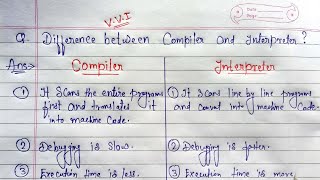 V.V.I
Date
Page
Q. Difference between Compiler and Interpreter?
Ans:→ Compiler Interpreter
① It Scans the entire programs first and translates it into machine code.
① It Scans line by line programs and convert into machine code.
② Debugging is slow.
② Debugging is faster.
③ Execution time is less.
③ Execution time is more.